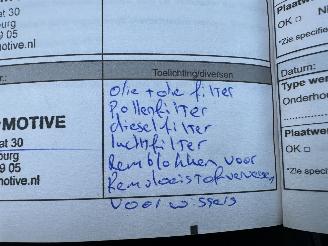 at 30
burg
9 05
motive.nl
r.:
Toelichting/diversen
MOTIVE
at 30
burg
9 05
motive.nl
Olie + olie filter
Pollenfilter
dieselfilter
luchtfilter
Remblokken voor
Remvloeistof verversen
voor wissers
Plaatw
OK □ N
*Zie specifi
Datum:
Type wer
Onderho
Plaatwe
OK □
*Zie speci